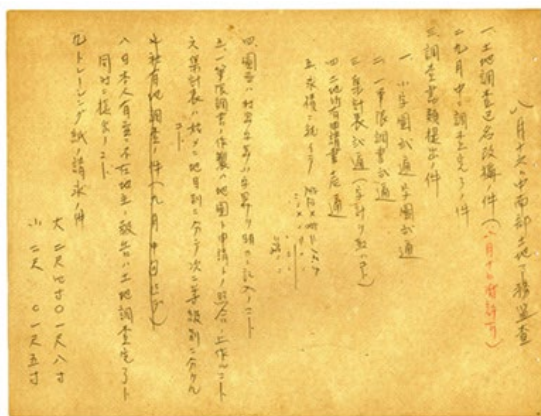 八月十六日中西部土地下務監査
一、土地調査色名改稱ノ件(八月十日附許可)
二、九月中ニ調査完了ノ件
三、調査書類提出ノ件
一、小字圖弐通 字圖弐通
二、一筆限調書弐通
三、集計表弐通(字計ヲ取ルコト)
四、土地所有申請書壱通
五、求積ニ就イテ
四、圖面ハ村界字界ハ字界ヲ明カニ記入ノコト
五、一筆限調書ノ作製ハ地圖ト申請ト照合ノ上作ルコト
六、集計表ハ始メニ地目別ニ分チ次ニ等級別ニ分ケルコト
七、社有地調査ノ件(九月中
八、日本人有並ニ不在地主ノ報告ハ土地調査完了ト
同時ニ提出ノコト
九、トレーシング紙ノ請求ノ件
大 二尺四寸 〇一尺八寸
小 二尺 〇一尺五寸